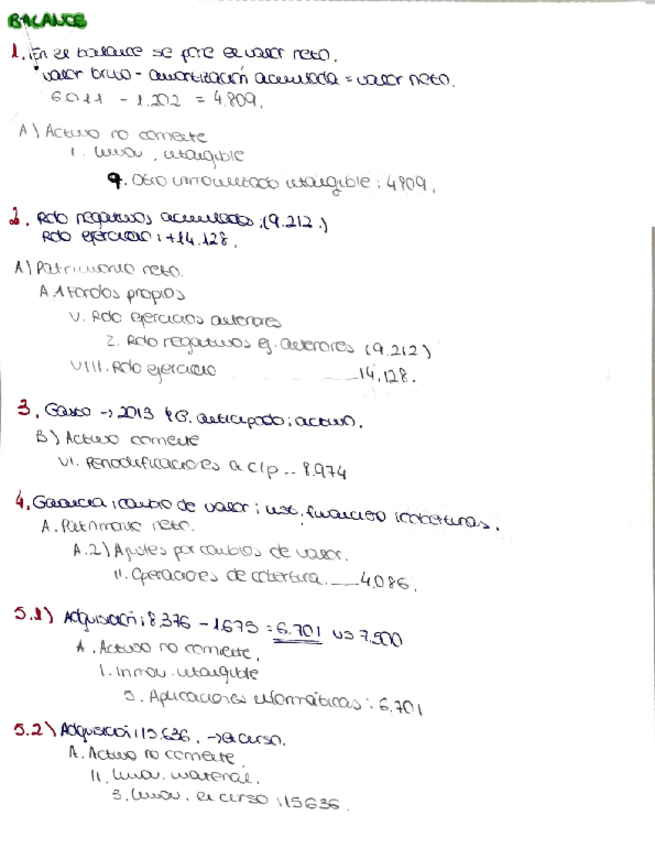 BALANCE
1. En el balance se pone el valor neto.
• valor bruto - amortización acumulada = valor neto.
6.011 - 1.202 = 4.809.
A) Activo no corriente
1. Inmov. intangible
9. Otro inmovilizado intangible: 4809.
2. Rdo negativos acumulado: (9.212.)
Rdo ejercicio: +14.128.
A) Patrimonio neto.
A.1 Fondos propios
V. Rdo ejercicios anteriores
2. Rdo negativos ej. anteriores (9.212)
VIII. Rdo ejercicio 14.128.
3. Gasto -> 2013 G. anticipado: activo.
B) Activo corriente
VI. Periodificaciones a c/p .. 8.974
4. Ganancia: cambio de valor: inst. financiero: coberturas.
A. Patrimonio neto.
A.2) Ajustes por cambios de valor.
II. Operaciones de cobertura. 4.086.
5.1) Adquisición: 8.376 - 1.675 = 6.701 vs 7.500
A. Activo no corriente.
1. Inmov. intangible
5. Aplicaciones informáticas: 6.701
5.2) Adquisición: 15.636. -> en curso.
A. Activo no corriente.
II. Inmov. material.
3. Inmov. en curso: 15636.